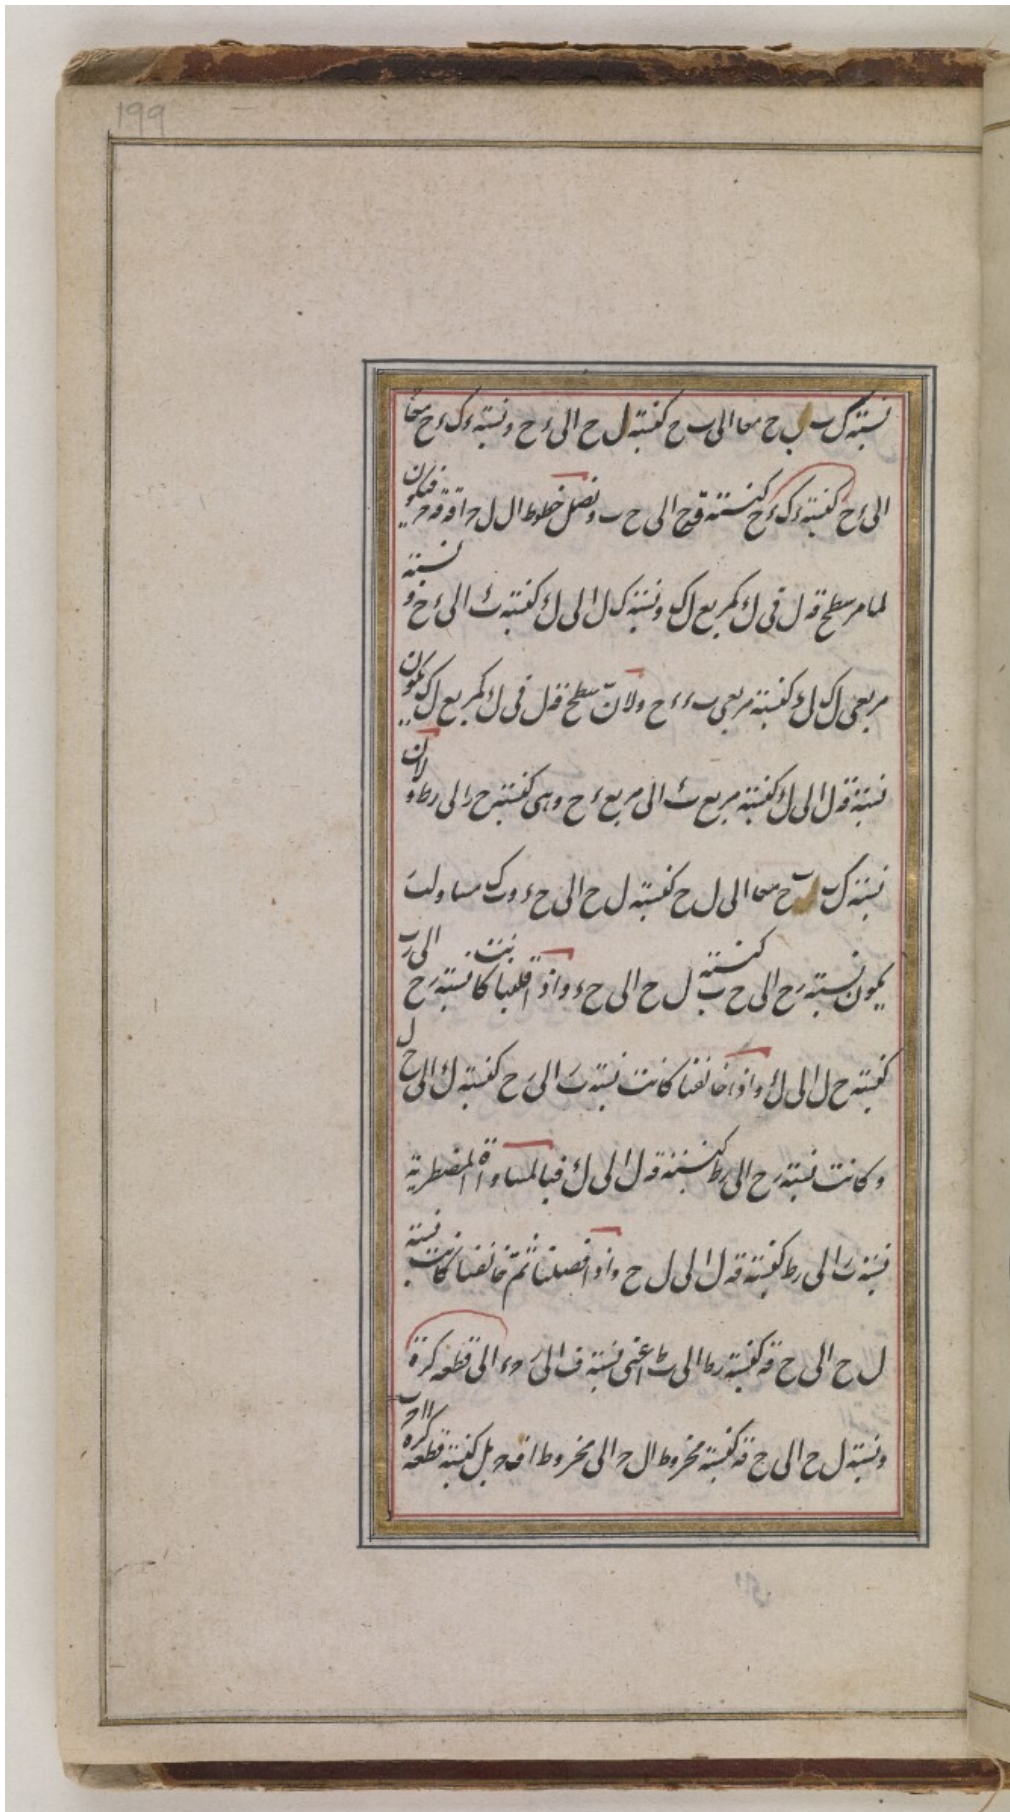 ١٩٩
نسبة ك ب ب ح معا الى ب ح كنسبة ل ح الى ء ح ونسبة ء ك ء ح معا
الى ء ح كنسبة ء ك ء ح كنسبة قح الى ح ب ونصل خطوط ال ل ح اقه قه ح فيكون
لما مر سطح قه ل فى ل ك كمربع ل ك ونسبة ك ل الى ل ك كنسبة ب ء الى ء ح و نسبة
مربعى ل ك ل ك كنسبة مربعى ب ء ء ح ولان سطح قه ل فى ل ك كمربع ل ك يكون
نسبة قه ل الى ل ك كنسبة مربع ب ء الى مربع ء ح وهى كنسبة ح ر الى ر ط و لان
نسبة ك ب ب ح معا الى ل ح كنسبة ل ح الى ح ء و ك ب مساو ل
يكون نسبة ر ح الى ح ب كنسبة ل ح الى ح ء واذا قلبنا كانت نسبة ر ح الى ر ب
كنسبة ح ل الى ل ك واذا خالفنا كانت نسبة ر ب الى ر ح كنسبة ل ك الى ح ل
وكانت نسبة ر ح الى ر ط كنسبة قه ل الى ل ك فبالمساواة المضطربة
نسبة ر ب الى ر ط كنسبة قه ل الى ل ح واذا فصلنا ثم خالفنا كانت نسبة
ل ح الى ح قه كنسبة ر ط الى ط ب اعنى نسبة ف الى ر ء الى قطعه كرة
ونسبة ل ح الى ح قه كنسبة مخروط ال ح الى مخروط اقه ح بل كنسبة قطعه كرة ا ا ح ب